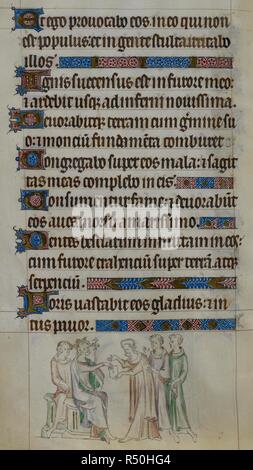 Et ego provocabo eos in eo qui non
est populus: et in gente stulta irritabo
illos.
Ignis succensus est in furore meo:
et ardebit usque ad inferni novissima.
Devorabitque terram cum germine su
o: et montium fundamenta comburet.
Congregabo super eos mala: et sagit
tas meas complebo in eis.
Consumentur fame: et devorabunt
eos aves morsu amarissimo.
Dentes bestiarum immittam in eos:
cum furore trahentium super terram atque
serpentium.
Foris vastabit eos gladius: et in
tus pavor.
alamy
Image ID: R50HG4
www.alamy.com